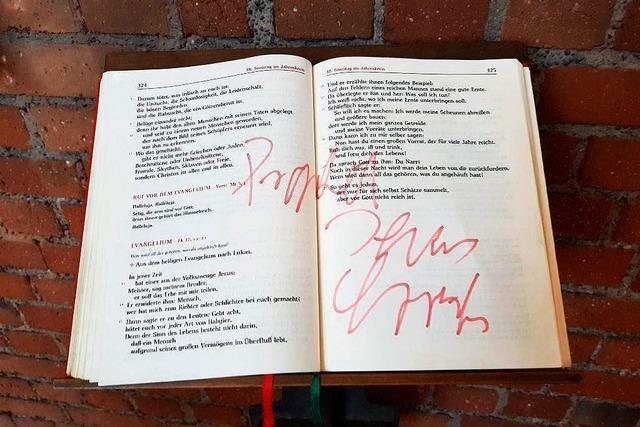 324
18. Sonntag im Jahreskreis
Darum tötet, was irdisch an euch ist:
die Unzucht, die Schamlosigkeit, die Leidenschaft,
die bösen Begierden
und die Habsucht, die ein Götzendienst ist.
Belügt einander nicht;
denn ihr habt den alten Menschen mit seinen Taten abgelegt
und seid zu einem neuen Menschen geworden,
der nach dem Bild seines Schöpfers erneuert wird,
um ihn zu erkennen.
Wo das geschieht,
gibt es nicht mehr Griechen oder Juden,
Beschnittene oder Unbeschnittene,
Fremde, Skythen, Sklaven oder Freie,
sondern Christus ist alles und in allen.
RUF VOR DEM EVANGELIUM Vers:
Halleluja. Halleluja.
Selig, die arm sind vor Gott;
denn ihnen gehört das Himmelreich.
Halleluja.
EVANGELIUM
Was wird all das gehören, was du angehäuft hast?
+ Aus dem heiligen Evangelium nach Lukas.
In jener Zeit
bat einer aus der Volksmenge Jesus:
Meister, sag meinem Bruder,
er soll das Erbe mit mir teilen.
Er erwiderte ihm: Mensch,
wer hat mich zum Richter oder Schlichter bei euch gemacht?
Dann sagte er zu den Leuten: Gebt acht,
hütet euch vor jeder Art von Habgier.
Denn der Sinn des Lebens besteht nicht darin,
daß ein Mensch
aufgrund seines großen Vermögens im Überfluß lebt.
18. Sonntag im Jahreskreis
325
Und er erzählte ihnen folgendes Beispiel:
Auf den Feldern eines reichen Mannes stand eine gute Ernte.
Da überlegte er hin und her: Was soll ich tun?
Ich weiß nicht, wo ich meine Ernte unterbringen soll.
Schließlich sagte er:
So will ich es machen: Ich werde meine Scheunen abreißen
und größere bauen;
dort werde ich mein ganzes Getreide
und meine Vorräte unterbringen.
Dann kann ich zu mir selber sagen:
Nun hast du einen großen Vorrat, der für viele Jahre reicht.
Ruh dich aus, iß und trink,
und freu dich des Lebens!
Da sprach Gott zu ihm: Du Narr!
Noch in dieser Nacht wird man dein Leben von dir zurückfordern.
Wem wird dann all das gehören, was du angehäuft hast?
So geht es jedem,
der nur für sich selbst Schätze sammelt,
aber vor Gott nicht reich ist.
Prophet
Jesus